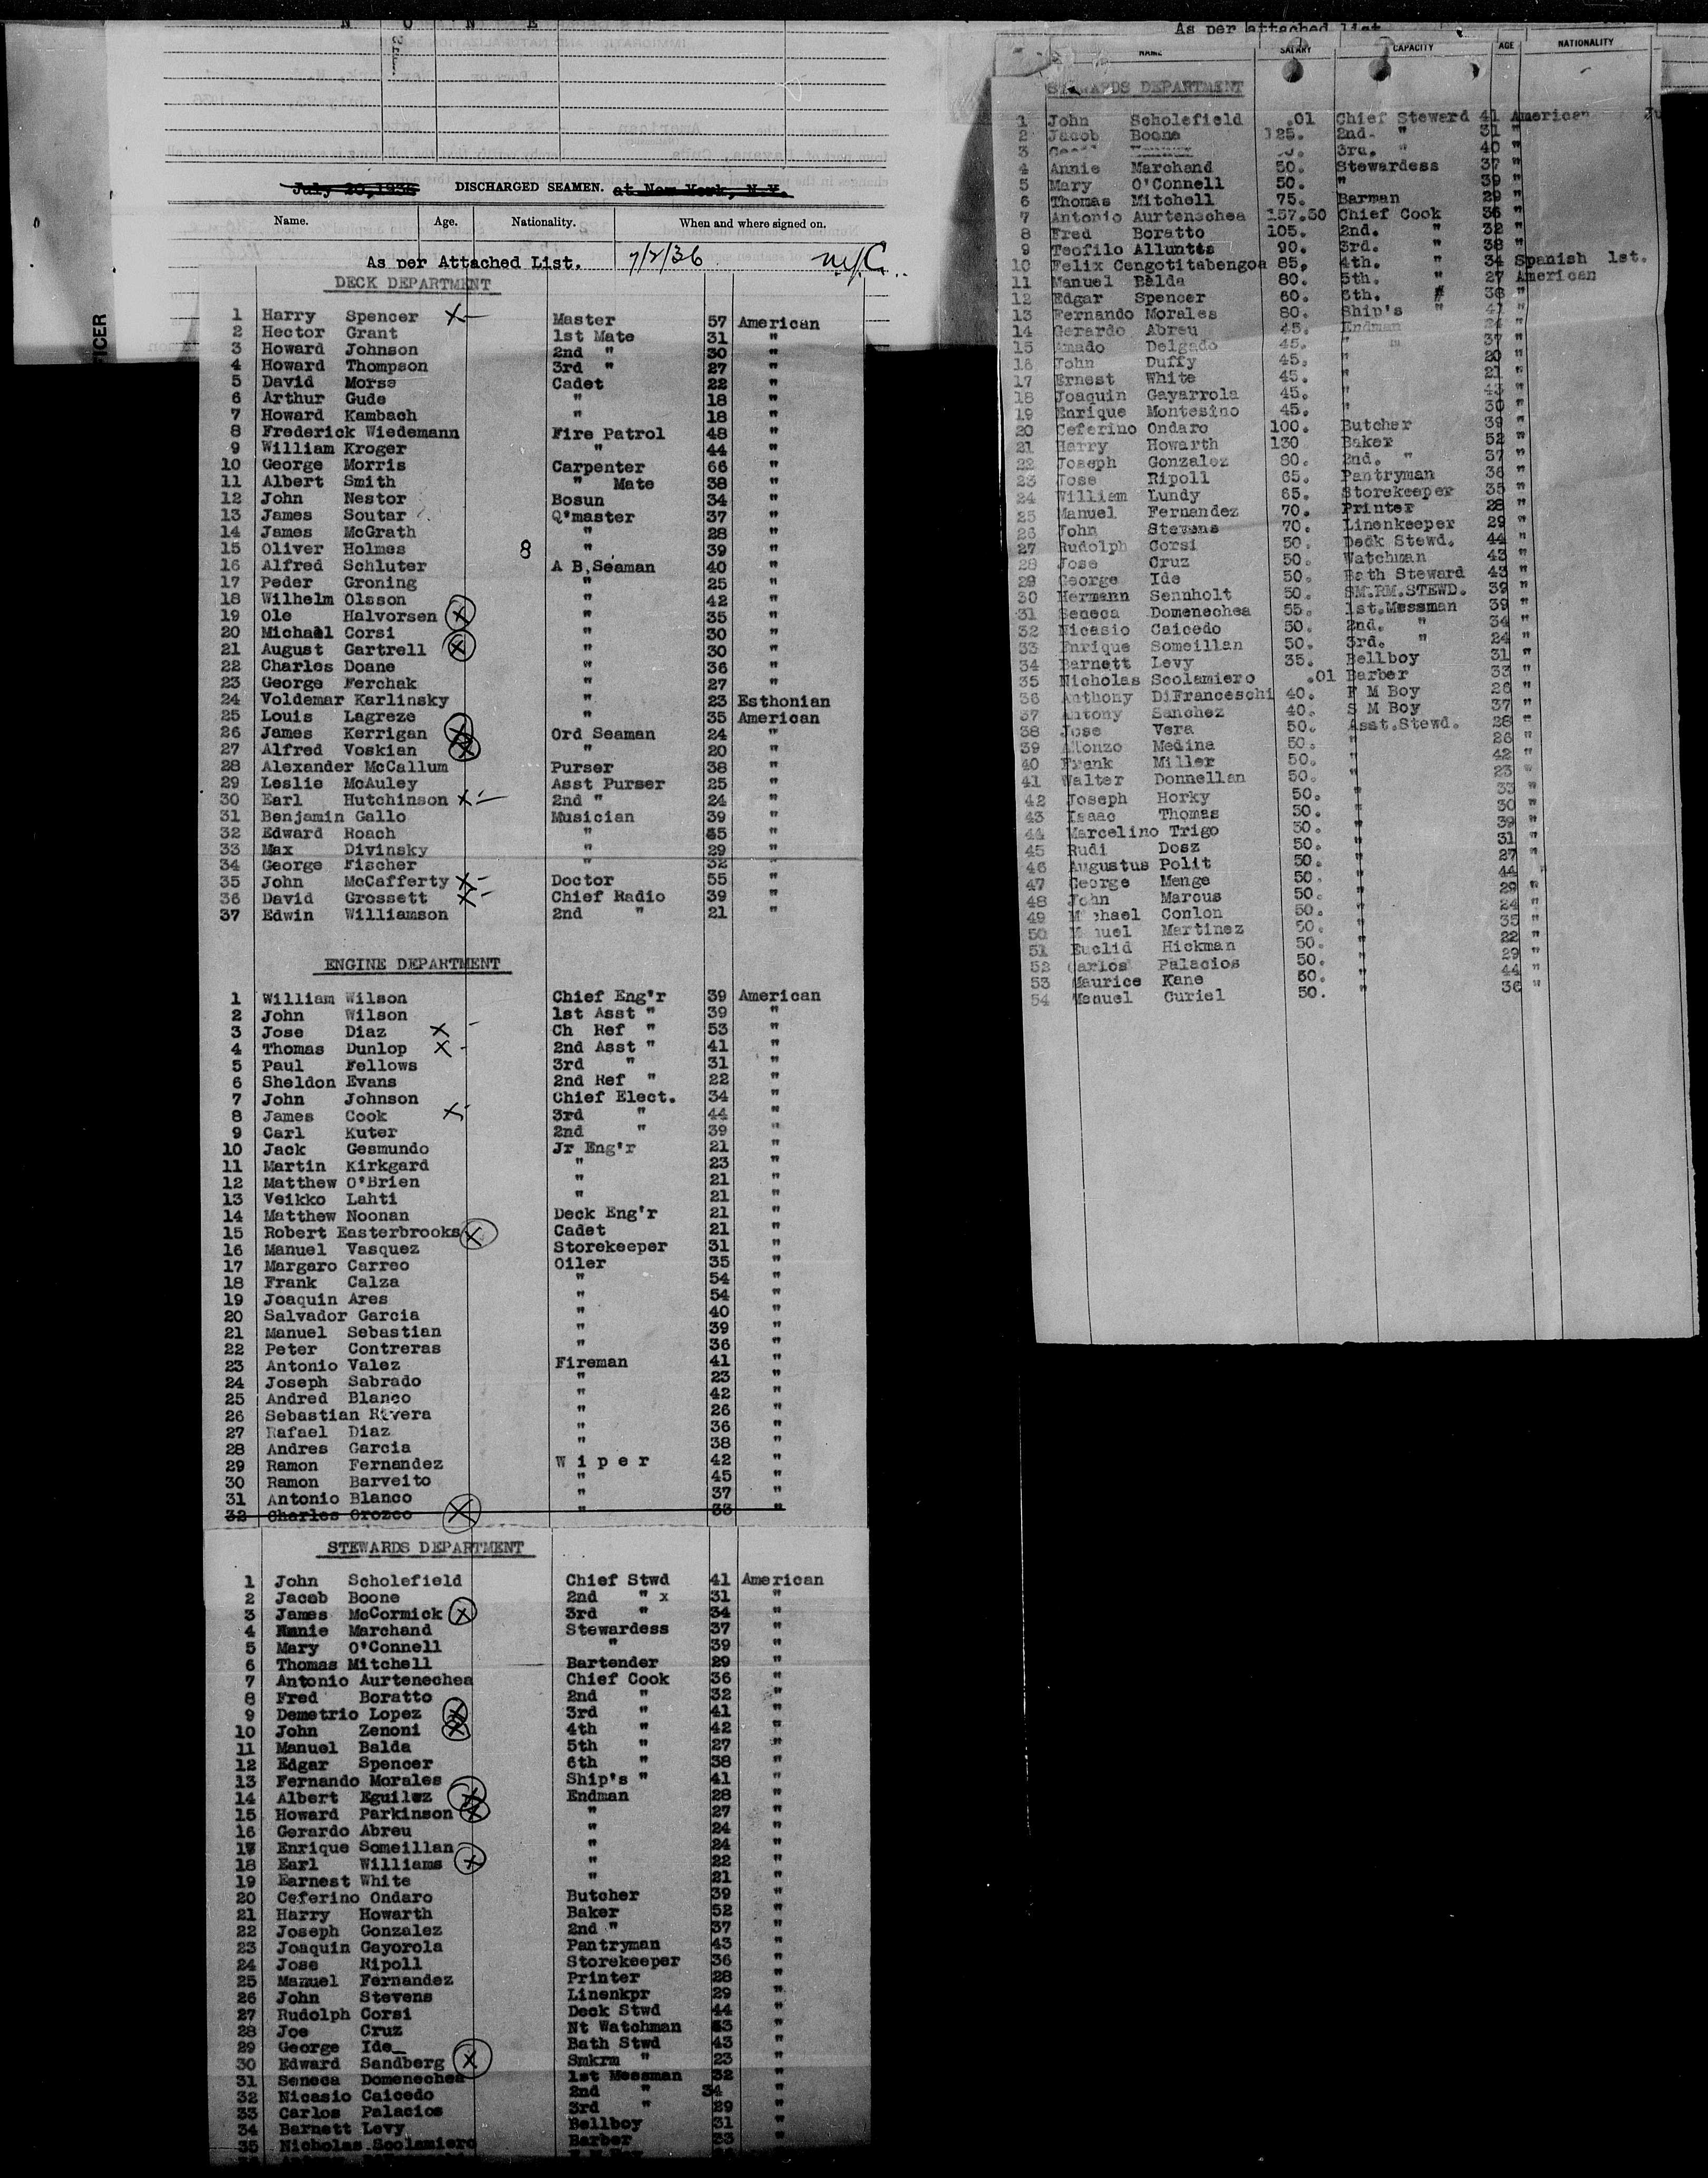 N O N E
July 20,1936 DISCHARGED SEAMEN. at New York, N.Y.
Name. Age. Nationality. When and where signed on.
As per Attached List. 7/2/36 NYC
DECK DEPARTMENT
1 Harry Spencer X Master 57 American
2 Hector Grant 1st Mate 31 "
3 Howard Johnson 2nd " 30 "
4 Howard Thompson 3rd " 27 "
5 David Morse Cadet 22 "
6 Arthur Gude " 18 "
7 Howard Kambach " 18 "
8 Frederick Wiedemann Fire Patrol 48 "
9 William Kroger " 44 "
10 George Morris Carpenter 66 "
11 Albert Smith " Mate 38 "
12 John Nestor Bosun 34 "
13 James Soutar Q'master 37 "
14 James McGrath " 28 "
15 Oliver Holmes 8 " 39 "
16 Alfred Schluter A B,Seaman 40 "
17 Peder Groning " 25 "
18 Wilhelm Olsson " 42 "
19 Ole Halvorsen X " 35 "
20 Michael Corsi " 30 "
21 August Gartrell X " 30 "
22 Charles Doane " 36 "
23 George Ferchak " 27 "
24 Voldemar Karlinsky " 23 Esthonian
25 Louis Lagreze " 35 American
26 James Kerrigan X Ord Seaman 24 "
27 Alfred Voskian X " 20 "
28 Alexander McCallum Purser 38 "
29 Leslie McAuley Asst Purser 25 "
30 Earl Hutchinson X 2nd " 24 "
31 Benjamin Gallo Musician 39 "
32 Edward Roach " "
33 Max Divinsky " 29 "
34 George Fischer " 32 "
35 John McCafferty X Doctor 55 "
36 David Grossett X Chief Radio 39 "
37 Edwin Williamson 2nd " 21 "
ENGINE DEPARTMENT
1 William Wilson Chief Eng'r 39 American
2 John Wilson 1st Asst " 39 "
3 Jose Diaz X Ch Ref " 53 "
4 Thomas Dunlop X 2nd Asst " 41 "
5 Paul Fellows 3rd " 31 "
6 Sheldon Evans 2nd Ref " 22 "
7 John Johnson Chief Elect. 34 "
8 James Cook X 3rd " 44 "
9 Carl Kuter 2nd " 39 "
10 Jack Gesmundo Jr Eng'r 21 "
11 Martin Kirkgard " 23 "
12 Matthew O'Brien " 21 "
13 Veikko Lahti " 21 "
14 Matthew Noonan Deck Eng'r 21 "
15 Robert Easterbrooks X Cadet 21 "
16 Manuel Vasquez Storekeeper 31 "
17 Margaro Carreo Oiler 35 "
18 Frank Calza " 54 "
19 Joaquin Ares " 54 "
20 Salvador Garcia " 40 "
21 Manuel Sebastian " 39 "
22 Peter Contreras " 36 "
23 Antonio Valez Fireman 41 "
24 Joseph Sabrado " 23 "
25 Andred Blanco " 42 "
26 Sebastian Rivera " 26 "
27 Rafael Diaz " 36 "
28 Andres Garcia " 38 "
29 Ramon Fernandez W i p e r 42 "
30 Ramon Barveito " 45 "
31 Antonio Blanco " 37 "
32 Charles Orozco X " 33 "
STEWARDS DEPARTMENT
1 John Scholefield Chief Stwd 41 American
2 Jacob Boone 2nd " x 31 "
3 James McCormick X 3rd " 34 "
4 Annie Marchand Stewardess 37 "
5 Mary O'Connell " 39 "
6 Thomas Mitchell Bartender 29 "
7 Antonio Aurtenechea Chief Cook 36 "
8 Fred Boratto 2nd " 32 "
9 Demetrio Lopez X 3rd " 41 "
10 John Zenoni X 4th " 42 "
11 Manuel Balda 5th " 27 "
12 Edgar Spencer 6th " 38 "
13 Fernando Morales Ship's " 41 "
14 Albert Eguilez X Endman 28 "
15 Howard Parkinson X " 27 "
16 Gerardo Abreu " 24 "
17 Enrique Someillan " 24 "
18 Earl Williams X " 22 "
19 Earnest White " 21 "
20 Ceferino Ondaro Butcher 39 "
21 Harry Howarth Baker 52 "
22 Joseph Gonzalez 2nd " 37 "
23 Joaquin Gayorola Pantryman 43 "
24 Jose Ripoll Storekeeper 36 "
25 Manuel Fernandez Printer 28 "
26 John Stevens Linenkpr 29 "
27 Rudolph Corsi Deck Stwd 44 "
28 Joe Cruz Nt Watchman "
29 George Ide Bath Stwd 43 "
30 Edward Sandberg X Smkrm " 23 "
31 Seneca Domenechea 1st Messman 32 "
32 Nicasio Caicedo 2nd " 34 "
33 Carlos Palacios 3rd " 29 "
34 Barnett Levy Bellboy 31 "
35 Nicholas Scolamiero Barber 33 "
As per attached list
NAME SALARY CAPACITY AGE NATIONALITY
STEWARDS DEPARTMENT
1 John Scholefield .01 Chief Steward 41 American Ju
2 Jacob Boone 125. 2nd. " 31 "
3 3rd. " 40 "
4 Annie Marchand 50. Stewardess 37 "
5 Mary O'Connell 50. " 39 "
6 Thomas Mitchell 75. Barman 29 "
7 Antonio Aurtenechea 157.50 Chief Cook 36 "
8 Fred Boratto 105. 2nd. " 32 "
9 Teofilo Alluntis 90. 3rd. " 38 "
10 Felix Cengotitabengoa 85. 4th. " 34 Spanish 1st.
11 Manuel Balda 80. 5th. " 27 American
12 Edgar Spencer 60. 6th. " 38 "
13 Fernando Morales 80. Ship's " 41 "
14 Gerardo Abreu 45. Endman 24 "
15 Amado Delgado 45. " 37 "
16 John Duffy 45. " 20 "
17 Ernest White 45. " 21 "
18 Joaquin Gayarrola 45. " 43 "
19 Enrique Montesino 45. " 30 "
20 Ceferino Ondaro 100. Butcher 39 "
21 Harry Howarth 130 Baker 52 "
22 Joseph Gonzalez 80. 2nd. " 37 "
23 Jose Ripoll 65. Pantryman 36 "
24 William Lundy 65. Storekeeper 35 "
25 Manuel Fernandez 70. Printer 28 "
26 John Stevens 70. Linenkeeper 29 "
27 Rudolph Corsi 50. Deck Stewd. 44 "
28 Jose Cruz 50. Watchman 43 "
29 George Ide 50. Bath Steward 43 "
30 Hermann Sennholt 50. SM.RM.STEWD. 39 "
31 Seneca Domenechea 55. 1st.Messman 39 "
32 Nicasio Caicedo 50. 2nd. " 34 "
33 Enrique Someillan 50. 3rd. " 24 "
34 Barnett Levy 35. Bellboy 31 "
35 Nicholas Scolamiero .01 Barber 33 "
36 Anthony DiFranceschi 40. F M Boy 26 "
37 Antony Sanchez 40. S M Boy 37 "
38 Jose Vera 50. Asst.Stewd. 28 "
39 Alonzo Medina 50. " 26 "
40 Frank Miller 50. " 42 "
41 Walter Donnellan 50. " 23 "
42 Joseph Horky 50. " 33 "
43 Isaac Thomas 50. " 30 "
44 Marcelino Trigo 50. " 39 "
45 Rudi Dosz 50. " 31 "
46 Augustus Polit 50. " 27 "
47 George Menge 50. " 44 "
48 John Marcus 50. " 29 "
49 Michael Conlon 50. " 24 "
50 Manuel Martinez 50. " 35 "
51 Euclid Hickman 50. " 22 "
52 Carlos Palacios 50. " 29 "
53 Maurice Kane 50. " 44 "
54 Manuel Curiel 50. " 36 "